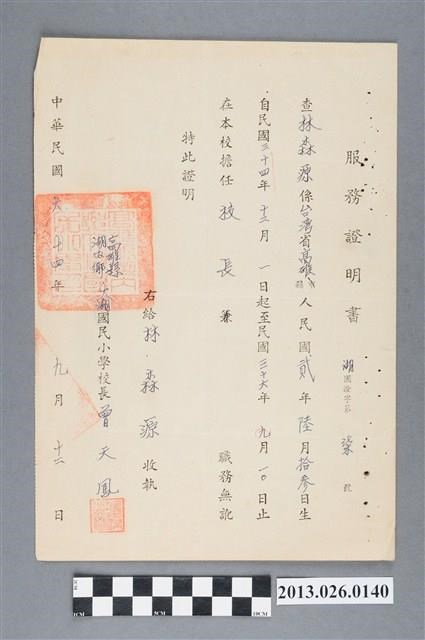 服務證明書
湖國證字第 柒 號
查林森源係台灣省高雄縣人民國貳年陸月拾參日生
自民國三十四年十二月一日起至民國三十六年九月一〇日止
在本校擔任校長兼 職務無訛
特此證明
右給林森源收執
高雄縣湖內鄉大湖國民小學校長曾天鳳
中華民國六十四年九月十二日
1CM 5CM 10CM
2013.026.0140